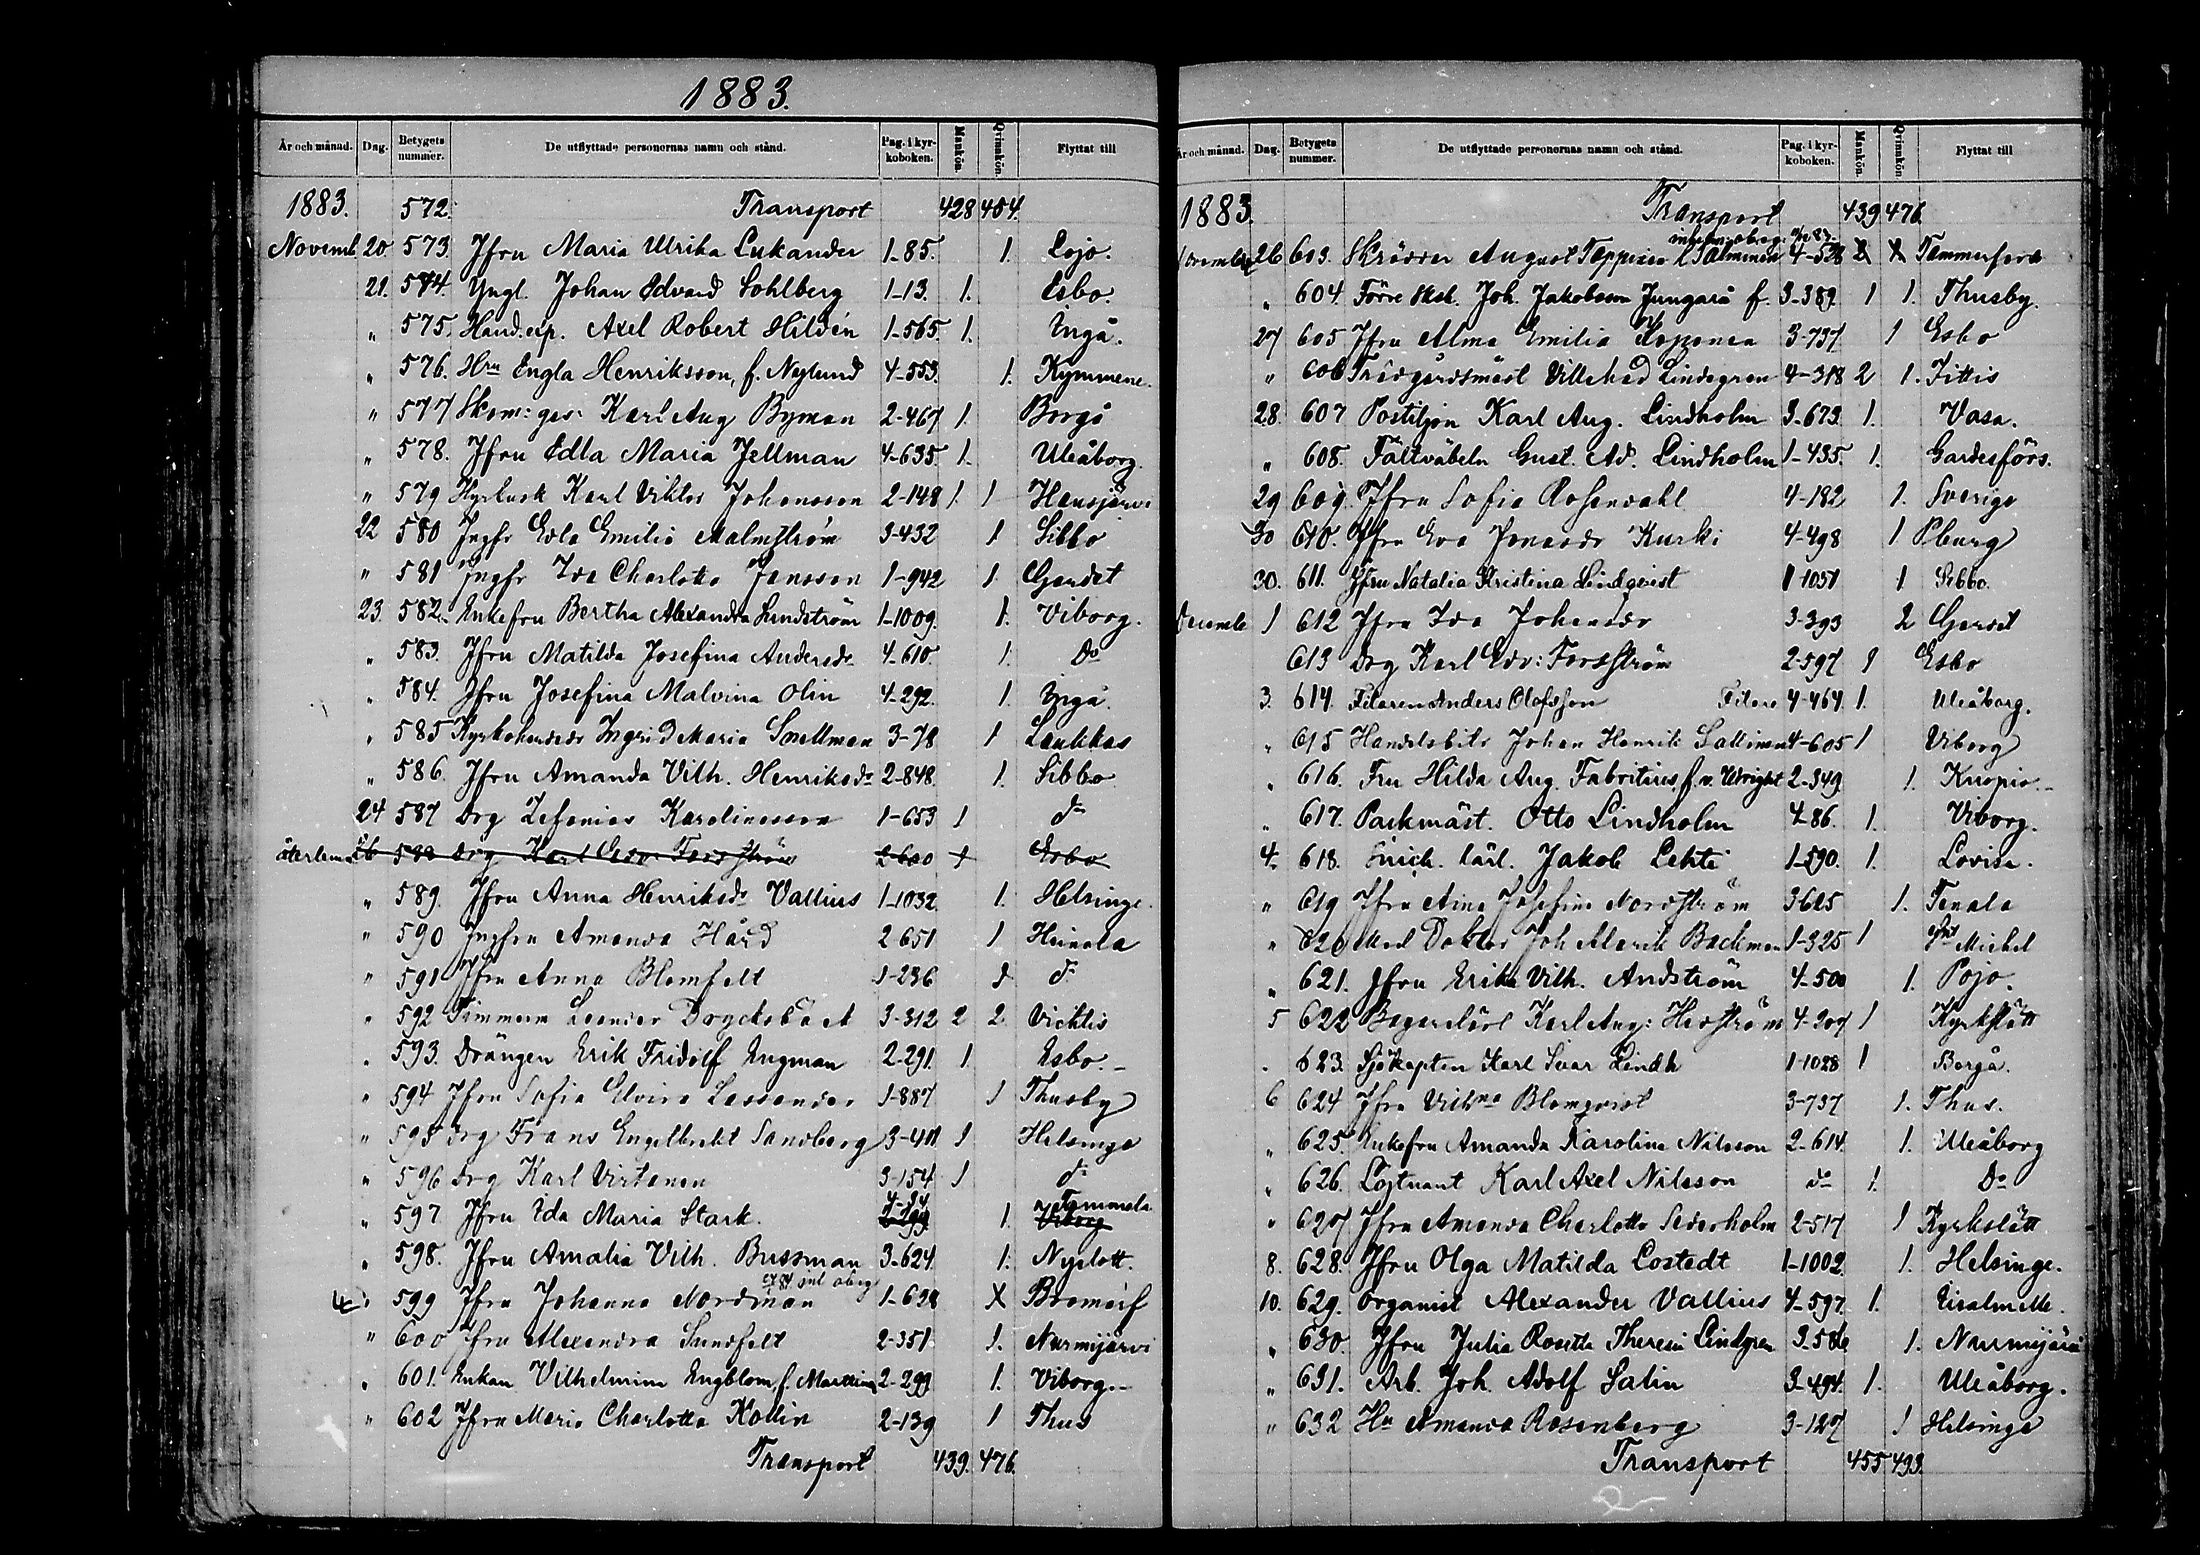 1883.
År och månad. Dag. Betygets nummer. De utflyttade personernas namn och stånd. Pag. i kyrkoboken. Mankön. Qvinnkön. Flyttat till
1883. 572. Transport 428 454.
Novemb. 20. 573. Jfru Maria Ulrika Lukander 1-85. 1. Lojo.
21. 574. Yngl. Johan Edvard Sohlberg 1-13. 1. Esbo.
" 575. Hand.exp. Axel Robert Hildén 1-565. 1. Ingå.
" 576. Hru Engla Henriksson, f. Neglund 4-553. 1. Kymmene.
" 577 Skom: ges: Karl Aug Byman 2-467 1. Borgå
" 578. Jfru Edla Maria Jellman 4-635. 1. Uleåborg.
" 579 Hyrkusk Karl Viktor Johansson 2-148 1 1 Hausjärvi
22 580 Jngfr Edla Emilia Malmström 3-432 1 Sibbo
" 581 Jngfr Ida Charlotta Jansson 1-942 1 Gardet
23. 582. Enkefru Bertha Alexandra Sundström 1-1009. 1. Viborg.
" 583. Jfru Matilda Josefina Andersdr 4-610. 1. Do
" 584. Jfru Josefina Malvina Olin 4-292. 1. Ingå.
" 585 Kyrkoherdedr Ingrid Maria Snellman 3-78 1 Laukkas
" 586. Jfru Amanda Vilh. Henriksdr 2-848. 1. Sibbo
24 587 Drg Zefanias Karolinasson 1-653 1 do
återlemn. 26 588 Drg Karl Edv. Forsström 2-600 1 Esbo
" 589. Jfru Anna Henriksdr Vallius 1-1032. 1. Helsinge.
" 590 Jngfru Amanda Hård 2 651 1 Heinola
" 591 Jfru Anna Blomfelt 1-236 1 do
" 592 Timmerm Leander Drycksbäck 3-312 2 2. Vichtis
" 593. Drängen Erik Fridolf Engman 2-291. 1. Esbo.
" 594 Jfru Sofia Elvira Lassander 1-887 1 Thusby
" 595 Drg Frans Engelbrekt Sandberg 3-411 1 Helsinge
" 596 Drg Karl Virtanen 3-154 1 do
" 597. Jfru Ida Maria Stark. 4-24 1. Tammela Viborg
" 598. Jfru Amalia Vilh. Bussman 3-624. 1. Nyslott.
" 599 Jfru Johanna Nordman 1-638 X Bromarf
" 600 Jfru Alexandra Sundfelt 2-351. 1. Nurmijärvi
" 601. Enkan Vilhelmina Engblom, f. Marttin 2-299 1. Viborg.
" 602 Jfru Maria Charlotta Kollin 2-139 1 Thus
Transport 439. 476.
År och månad. Dag. Betygets nummer. De utflyttade personernas namn och stånd. Pag. i kyrkoboken. Mankön. Qvinnkön Flyttat till
1883. Transport 439. 476.
November 26 603. Skräddar August Tappinen 4-528 Tammerfors
" 604. Förre Sksk. Joh. Jakobsson Jungarå f. 3-389. 1 1. Thusby.
27 605 Jfru Alma Emilia Koponen 3-737 1 Esbo
" 606 Trädgårdsmäst Villehad Lindegren 4-318 2 1. Jittis
28. 607 Postiljon Karl Aug. Lindholm 3-673. 1. Vasa.
" 608. Fältväbeln Gust. Ad. Lindholm 1-435. 1. Gardesförs.
29 609. Jfru Sofia Rosendahl 4-182 1. Sverige
30 610. Jfru Eva Jonasdr Kurki 4-498 1 Pburg
30. 611. Jfru Natalia Kristina Lindqvist 1-1051 1 Sibbo.
Decembe 1 612 Jfru Ida Johansdr 3-393 2 Gardet
613 Drg Karl Edv: Forsström 2-597 1 Esbo
3. 614. Filaren Anders Olofsson Filare 4-464. 1. Uleåborg.
" 615 Handelsbitr Johan Henrik Sallinen 4-605 1 Viborg
" 616. Fru Hilda Aug. Fabritius, f. v. Wright 2-349. 1. Kuopio.
" 617. Packmäst. Otto Lindholm 4-86. 1. Viborg.
4. 618. Snick. lärl. Jakob Lehti 1-590. 1. Lovisa.
" 619 Jfru Aina Josefina Nordström 3625 1. Tenala
" 620 Med Doktor Joh Alarik Backman 1-325 1 St Michel
" 621. Jfru Erika Vilh. Andström 4-500 1. Pojo.
5 622 Bagarelärl Karl Aug: Hedström 4-307 1 Kyrkslätt
" 623. Sjökapten Karl Ivar Lindh 1-1028 1 Borgå.
6 624 Jfru Vilhna Blomqvist 3-737 1. Thus.
" 625. Enkefru Amanda Karolina Nilsson 2-614. 1. Uleåborg
" 626. Löjtnant Karl Axel Nilsson do 1. Do
" 627 Jfru Amanda Charlotta Sederholm 2-517 1 Kyrkslätt
8. 628. Jfru Olga Matilda Lostedt 1-1002. 1. Helsinge.
10. 629. Organist Alexander Vallius 4-597. 1. Iisalmi
" 630. Jfru Julia Rosetta Theresia Lindgren 3.586 1. Nurmijärvi
" 631. Arb. Joh. Adolf Salin 3-494. 1. Uleåborg.
" 632 Hu Amanda Rosenberg 3-127 1 Helsinge
Transport 455 493.